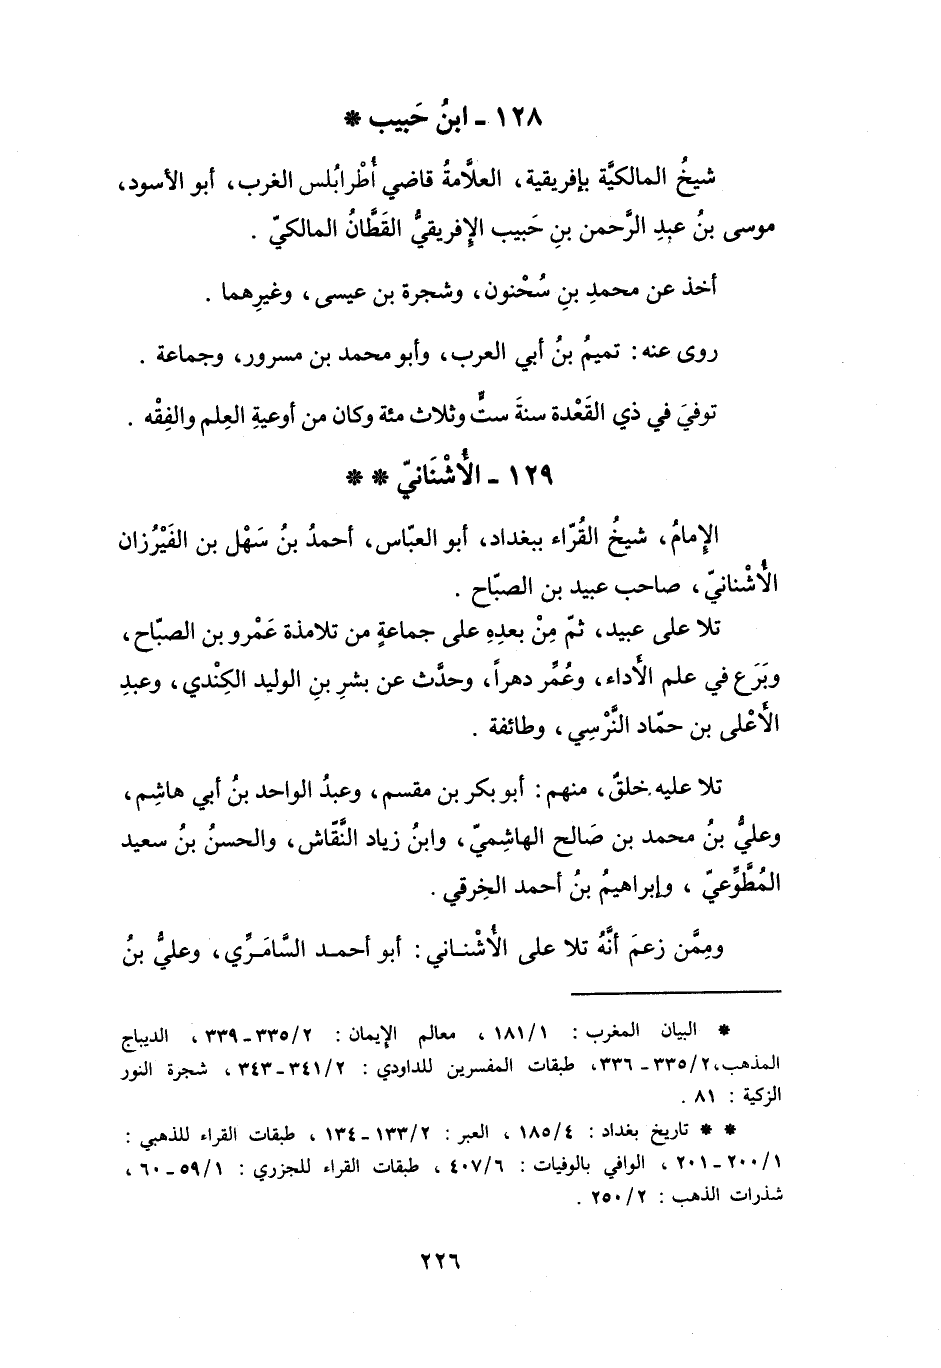 ١٢٨ - ابنُ حَبيب *
شيخُ المالكيَّة بإفريقية، العلَّامةُ قاضي أُطْرابُلس الغرب، أبو الأسود،
موسى بنُ عبدِ الرَّحمن بنِ حَبيب الإفريقيُّ القَطَّانُ المالكيّ .
أخذ عن محمدِ بنِ سُحْنون، وشجرة بن عيسى، وغيرِهما .
روى عنه: تميمُ بنُ أبي العرب، وأبو محمد بن مسرور، وجماعة .
توفيَ في ذي القَعْدة سنةَ ستٍّ وثلاث مئة وكان من أوعيةِ العِلم والفِقْه .
١٢٩ - الأُشْنَانيّ * *
الإمامُ، شيخُ القُرّاء ببغداد، أبو العبّاس، أحمدُ بنُ سَهْل بن الفَيْرُزان
الأُشْنانيّ، صاحب عبيد بن الصبّاح .
تلا على عبيد، ثمّ مِنْ بعدِهِ على جماعةٍ من تلامذة عَمْرو بن الصبّاح،
وبَرَع في علم الأَداء، وعُمِّر دهراً، وحدَّث عن بشرِ بنِ الوليد الكِنْدي، وعبدِ
الأَعْلى بن حمّاد النَّرْسِي، وطائفة .
تلا عليه خلقٌ، منهم: أبو بكر بن مقسم، وعبدُ الواحد بنُ أبي هاشِم،
وعليُّ بنُ محمد بن صَالح الهاشِميّ، وابنُ زياد النَّقّاش، والحسنُ بنُ سعيد
المُطَّوِّعيّ، وإبراهيمُ بنُ أحمد الخِرقي .
ومِمَّن زعمَ أنَّهُ تلا على الأُشْناني: أبو أحمد السَّامَرِّي، وعليُّ بنُ
* البيان المغرب: ١٨١/١، معالم الإيمان: ٣٣٥/٢-٣٣٩، الديباج
المذهب،٣٣٥/٢-٣٣٦، طبقات المفسرين للداودي: ٣٤١/٢-٣٤٣، شجرة النور
الزكية: ٨١ .
* * تاريخ بغداد: ١٨٥/٤، العبر: ١٣٣/٢-١٣٤، طبقات القراء للذهبي:
٢٠٠/١-٢٠١، الوافي بالوفيات: ٤٠٧/٦، طبقات القراء للجزري: ٥٩/١-٦٠،
شذرات الذهب: ٢٥٠/٢ .
٢٢٦